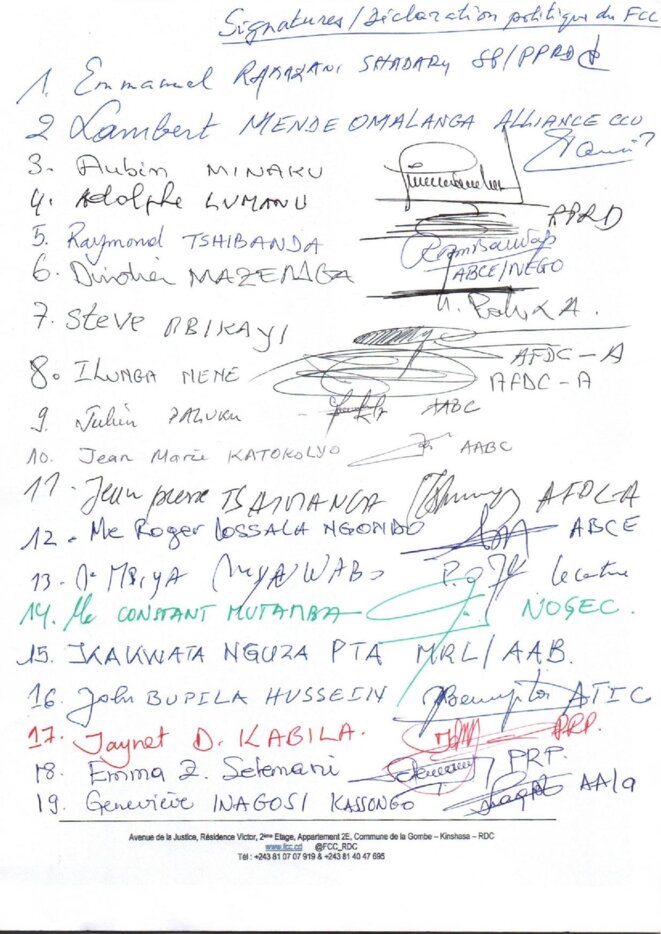 Signatures/Déclaration politique du FCC
1. Emmanuel RAMAZANI SHADARY SP/PPRD
2 Lambert MENDE OMALANGA ALLIANCE CCU
3. Aubin MINAKU
4. Adolphe LUMANU PPRD
5. Raymond TSHIBANDA ABCE/NEGO
6. MAZEMBA
7. Steve MBIKAYI
8. ILUNGA MENE AFDC-A
AFDC-A
9. Julien PALUKU AABC
10. Jean Marie KATOKOLYO AABC
11. Jean pierre TSHIMANGA AFDC-A
12. Me Roger LOSSALA NGONDO ABCE
13.
14. Me CONSTANT MUTAMBA NOGEC.
15. IKAKWATA NGUZA PTA MRL/AAB.
16 John BUPILA HUSSEIN ATIC
17. Jaynet D. KABILA. PRP.
18. Emma Z. Selemani PRP.
19. Geneviève INAGOSI KASSONGO
Avenue de la Justice, Résidence Victor, 2ème Etage, Appartement 2E, Commune de la Gombe – Kinshasa – RDC
www.fcc.cd @FCC_RDC
Tél : +243 81 07 07 919 & +243 81 40 47 695